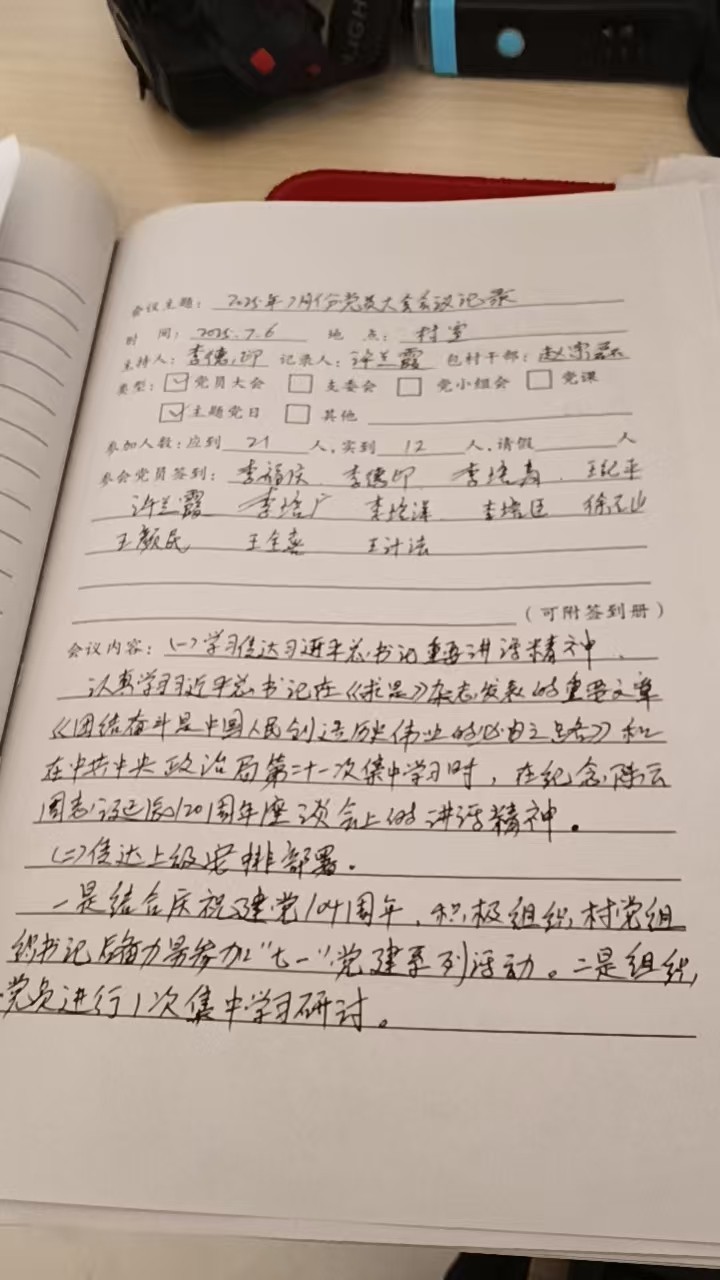 LIGH
会议主题：2025年7月份党员大会会议记录
时 间：2025.7.6 地 点：村室
主持人：李德印 记录人：许兰霞 包村干部：赵
类型：☑党员大会 □支委会 □党小组会 □党课
☑主题党日 □其他
参加人数：应到 21 人，实到 12 人，请假 人
参会党员签到：李福庆 李德印 李培 王纪平
许兰霞 李培广 李培洋 李培臣 徐
王颜民 王全喜 王计法
（可附签到册）
会议内容：(一)学习传达习近平总书记重要讲话精神.
认真学习习近平总书记在《求是》杂志发表的重要文章
《团结奋斗是中国人民创造历史伟业的必由之路》和
在中共中央政治局第二十一次集中学习时，在纪念陈云
同志诞辰120周年座谈会上的讲话精神。
(二)传达上级安排部署.
一是结合庆祝建党104周年，积极组织村党组
织书记后备力量参加"七一"党建系列活动。二是组织
党员进行1次集中学习研讨。